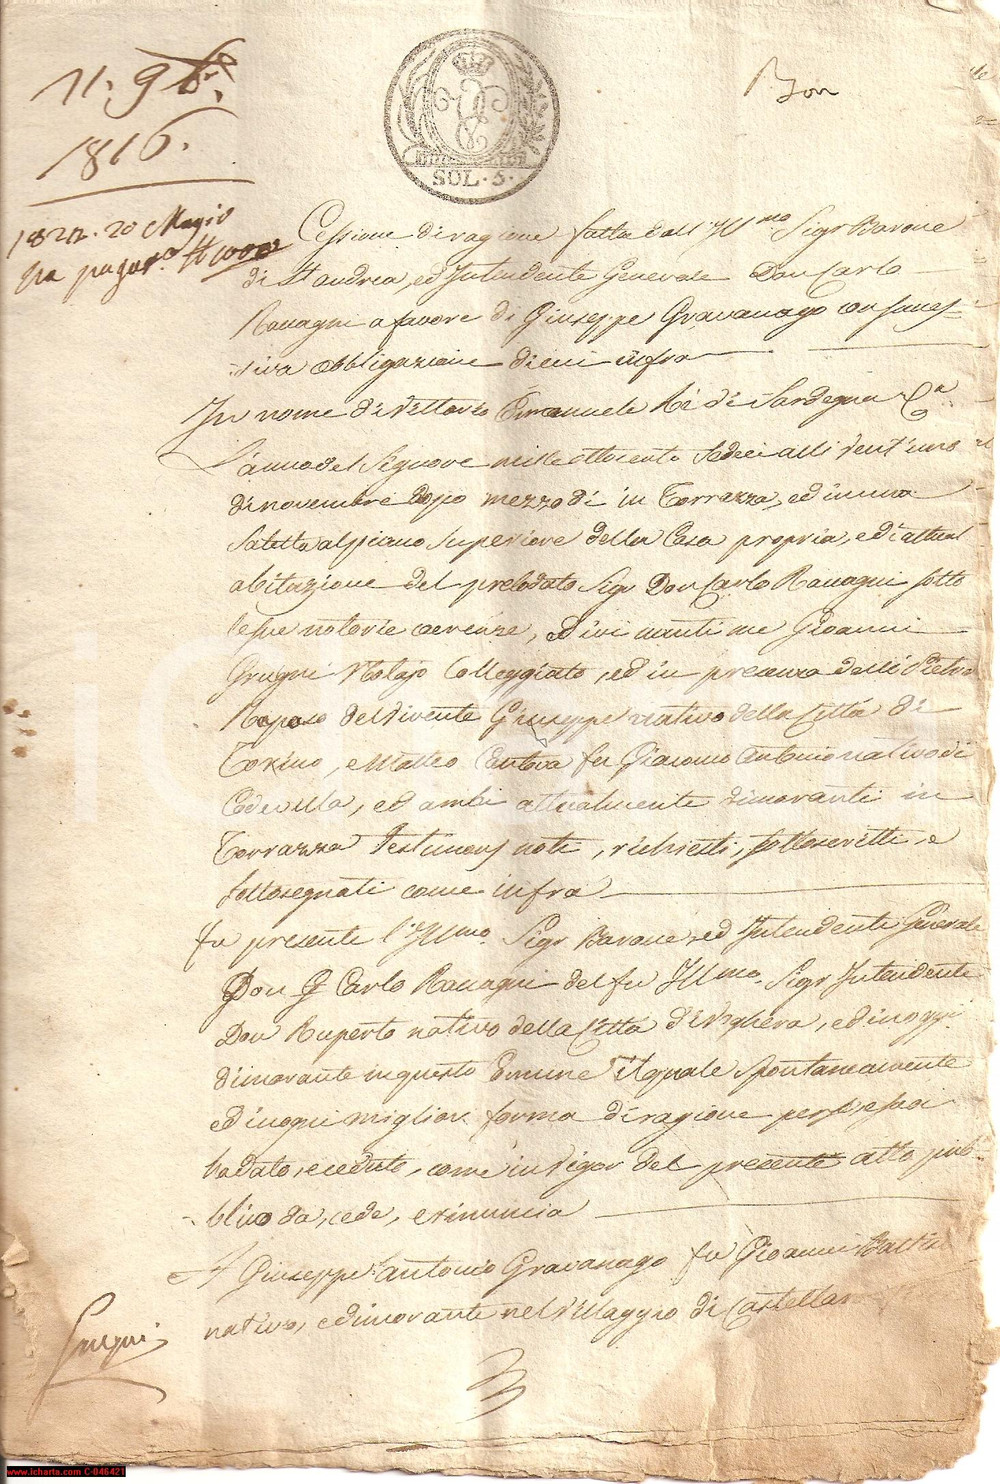 11. 9bre
1816.
1822. 20 Maggio
ha pagato ₶ 1000
SOL. 5.
Bon
Cessione di ragione fatta dall'Ill.mo Sigr Barone
di St Andrea, ed Intendente Generale Don Carlo
Ravagni a favore di Giuseppe Gravanago con
siva obbligazione di cui infra
In nome di Vittorio Emanuele Re di Sardegna &a
L'anno del Signore mille ottocento sedeci alli vent'uno
di novembre dopo mezzo dì in Torrazza, ed in una
Saletta al piano superiore della Casa propria, ed attual
abitazione del prelodato Sigr Don Carlo Ravagni sotto
le sue notorie coerenze, ed ivi nanti me Gioanni
Grugni Notajo Colleggiato, ed in presenza delli Pietro
Raposo del vivente Giuseppe nativo della Città di
Torino, e Matteo fu Giacomo Antonio nativo di
Codevilla, ed ambi attualmente dimoranti in
Torrazza Testimonj noti, richiesti, sottoscritti, e
sottosegnati come infra
Fu presente l'Ill.mo Sigr Barone, ed Intendente Generale
Don Carlo Ravagni del fu Ill.mo Sigr Intendente
Don Ruperto nativo della Città di Voghera, ed in oggi
dimorante in questo Comune il quale spontaneamente
ed in ogni miglior forma di ragione per se, e suoi
ha dato, e ceduto, come in vigor del presente atto pub-
blico da, cede, e rinuncia
A Giuseppe Antonio Gravanago fu Gioanni Battista
nativo, e dimorante nel Villaggio di
Grugni
www.icharta.com C-046421